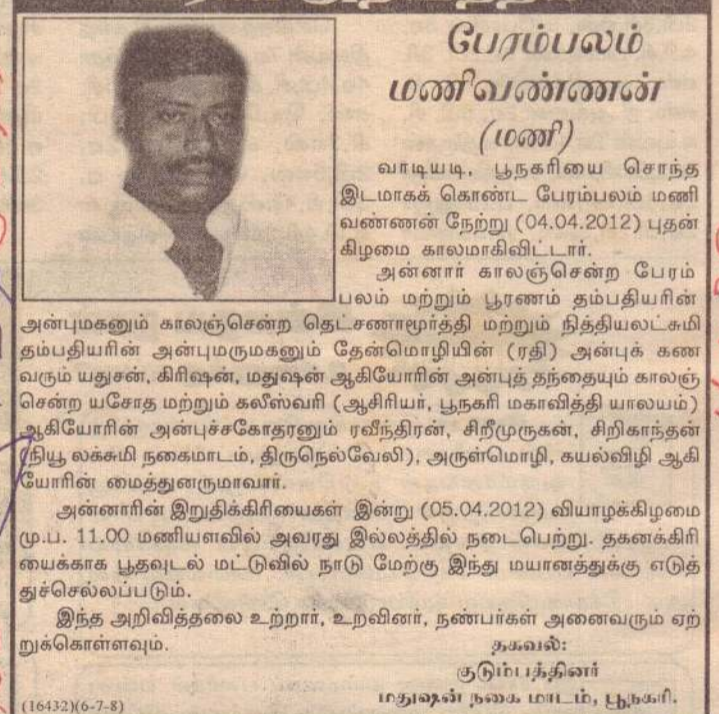 பேரம்பலம்
மணிவண்ணன்
(மணி)
வாடியடி, பூநகரியை சொந்த
இடமாகக் கொண்ட பேரம்பலம் மணி
வண்ணன் நேற்று (04.04.2012) புதன்
கிழமை காலமாகிவிட்டார்.
அன்னார் காலஞ்சென்ற பேரம்
பலம் மற்றும் பூரணம் தம்பதியரின்
அன்புமகனும் காலஞ்சென்ற தெட்சணாமூர்த்தி மற்றும் நித்தியலட்சுமி
தம்பதியரின் அன்புமருமகனும் தேன்மொழியின் (ரதி) அன்புக் கண
வரும் யதுசன், கிரிஷன், மதுஷன் ஆகியோரின் அன்புத் தந்தையும் காலஞ்
சென்ற யசோத மற்றும் கலீஸ்வரி (ஆசிரியர், பூநகரி மகாவித்தி யாலயம்)
ஆகியோரின் அன்புச்சகோதரனும் ரவீந்திரன், சிறீமுருகன், சிறிகாந்தன்
(நியூ லக்சுமி நகைமாடம், திருநெல்வேலி), அருள்மொழி, கயல்விழி ஆகி
யோரின் மைத்துனருமாவார்.
அன்னாரின் இறுதிக்கிரியைகள் இன்று (05.04.2012) வியாழக்கிழமை
மு.ப. 11.00 மணியளவில் அவரது இல்லத்தில் நடைபெற்று. தகனக்கிரி
யைக்காக பூதவுடல் மட்டுவில் நாடு மேற்கு இந்து மயானத்துக்கு எடுத்
துச்செல்லப்படும்.
இந்த அறிவித்தலை உற்றார், உறவினர், நண்பர்கள் அனைவரும் ஏற்
றுக்கொள்ளவும்.
தகவல்:
குடும்பத்தினர்
மதுஷன் நகை மாடம், பூநகரி.
(16432)(6-7-8)